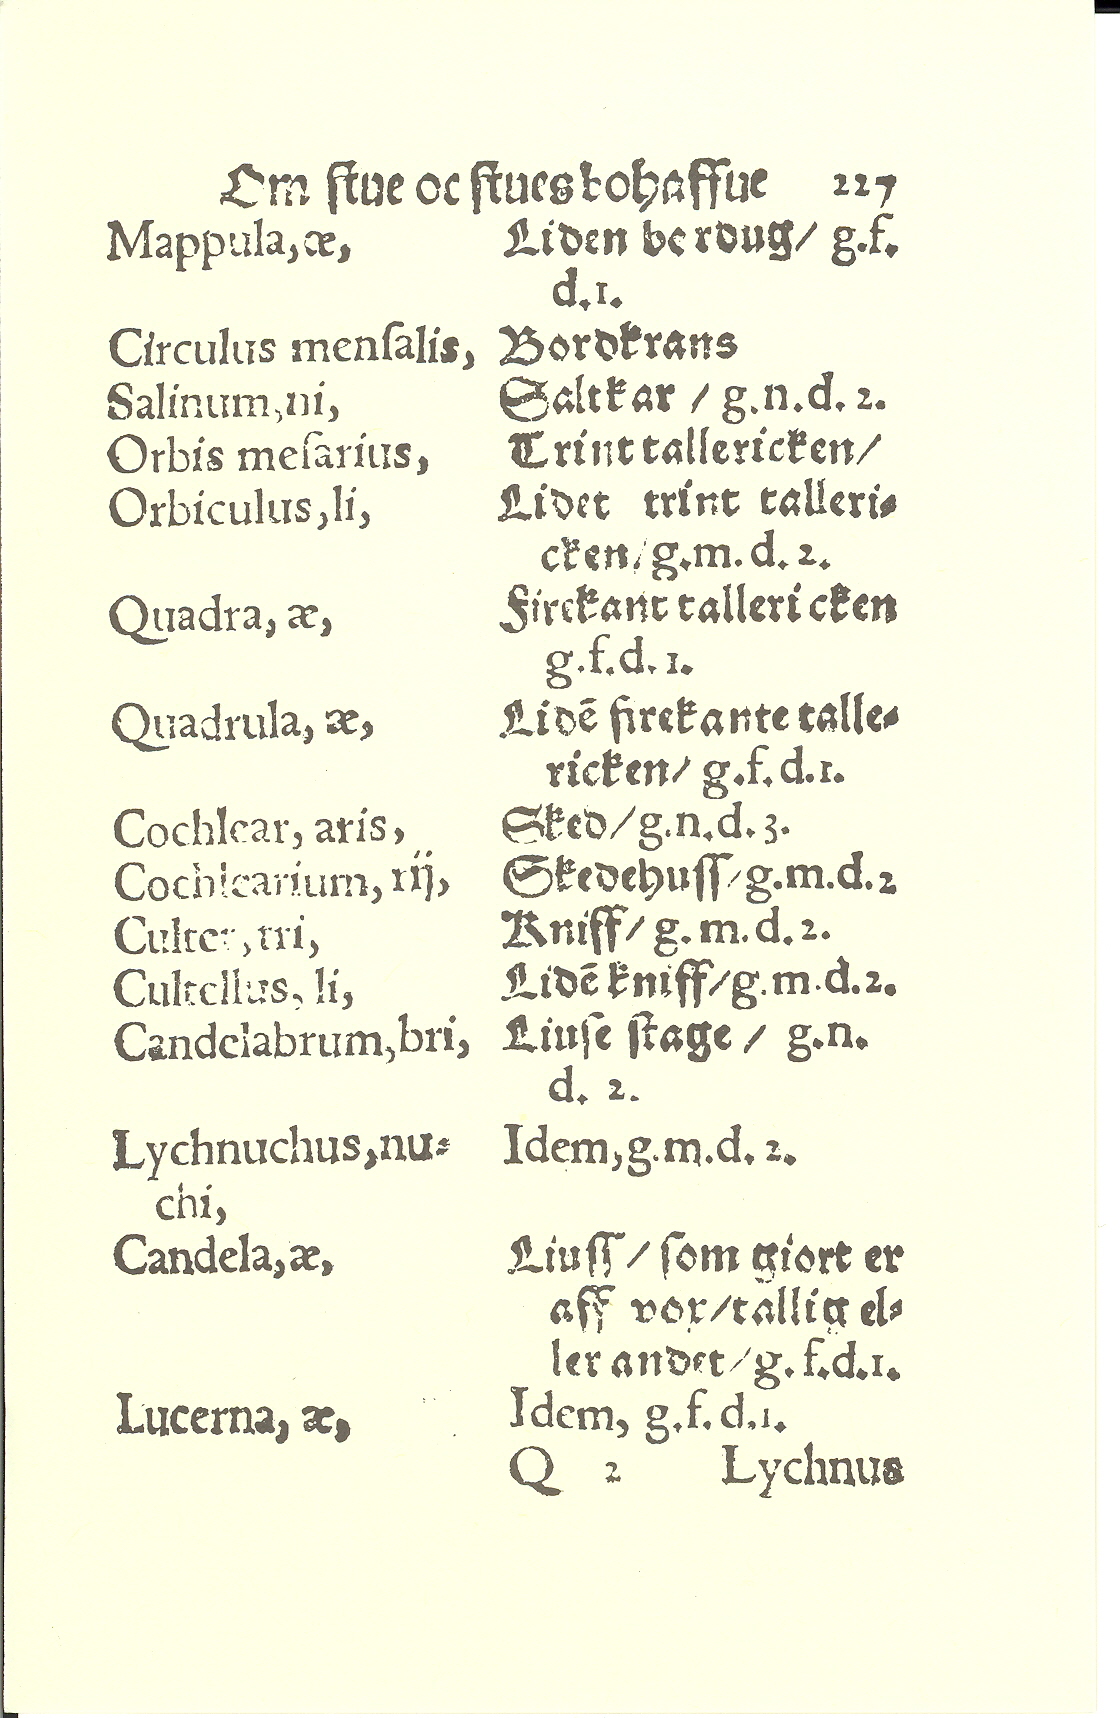 Om ſtue oc ſtues bohaffue 227
Mappula, æ, Liden bordug/ g.f.
d.1.
Circulus menſalis, Bordkrans
Salinum, ni, Saltkar / g.n.d. 2.
Orbis mēſarius, Trint tallericken/
Orbiculus, li, Lidet trint talleri⸗
cken/ g.m.d. 2.
Quadra, æ, Firekant tallericken
g.f.d. 1.
Quadrula, æ, Lidē firekante talle⸗
ricken/ g.f.d.1.
Cochlear, aris, Sked/ g.n.d. 3.
Cochlearium, rij, Skedehuſſ/ g.m.d.2
Culter, tri, Kniff/ g.m.d. 2.
Cultellus, li, Lidē kniff/ g.m.d.2.
Candelabrum, bri, Liuſe ſtage / g.n.
d. 2.
Lychnuchus, nu⸗ Idem, g.m.d. 2.
chi,
Candela, æ, Liuſſ / ſom giort er
aff vox/ tallig el⸗
ler andet/ g.f.d.1.
Lucerna, æ, Idem, g.f.d.1.
Q 2 Lychnus